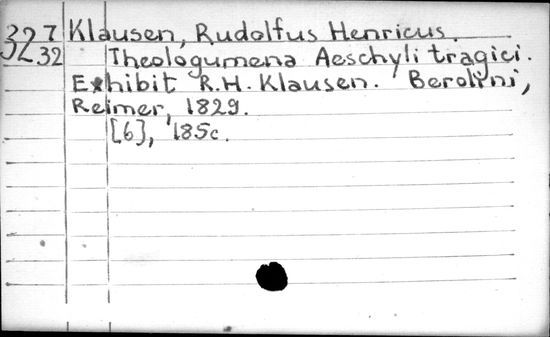 327 Klausen, Rudolfus Henricus.
3232 Theologumena Aeschyli tragici.
Exhibit R.H. Klausen. Berolini,
Reimer, 1829.
[6], 185c.